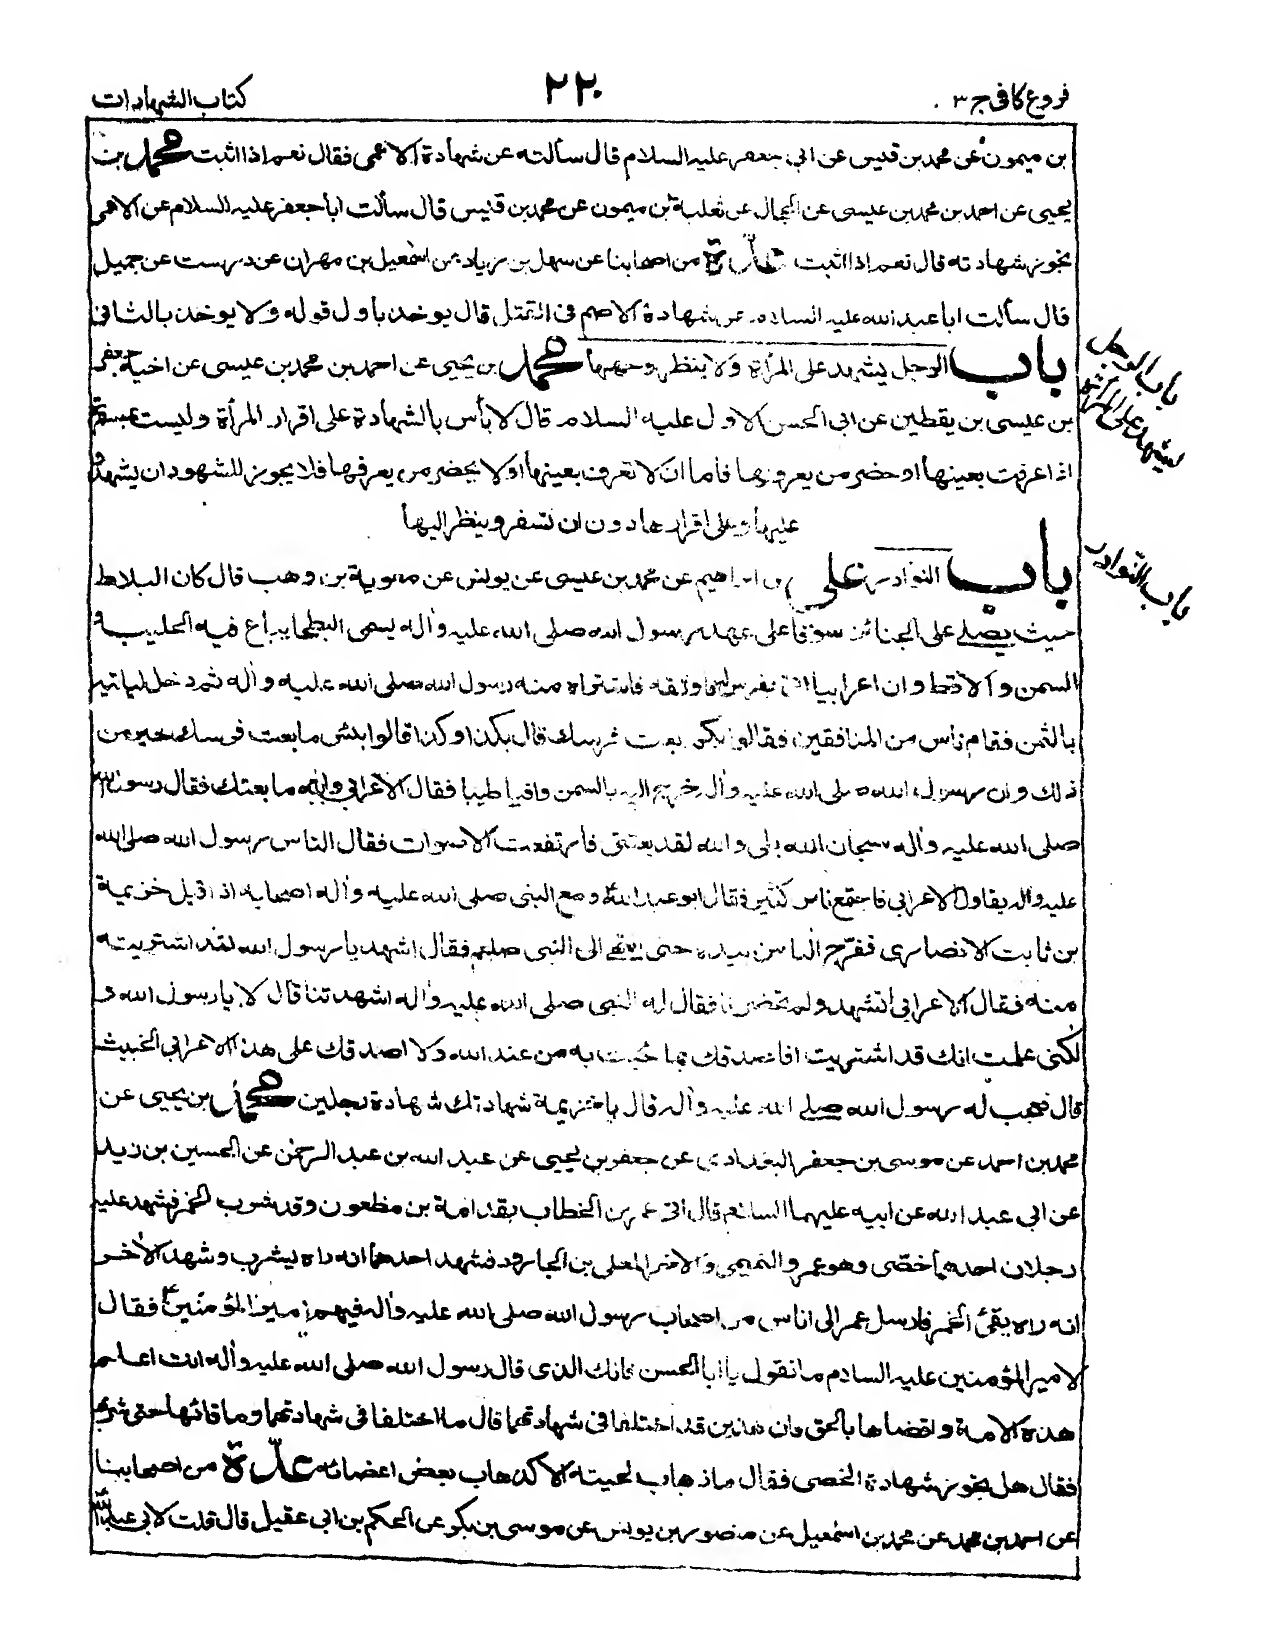 فروع كافى ج ٣
٢٢٠
كتاب الشهادات
بن ميمون عن محمد بن قيس عن ابى جعفر عليه السلام قال سألته عن شهادة الاعمى فقال نعم اذا اثبت محمد بن
يحيى عن احمد بن محمد بن عيسى عن الحجال عن ثعلبة بن ميمون عن محمد بن قيس قال سألت ابا جعفر عليه السلام عن الاعمى
يجوز شهادته قال نعم اذا اثبت عدة من اصحابنا عن سهل بن زياد عن اسمعيل بن مهران عن درست عن جميل
قال سألت ابا عبد الله عليه السلام عن شهادة الاصم فى القتل قال يوخذ باول قوله ولا يوخذ بالثانى
باب الرجل يشهد على المرأة ولا ينظر وجهها محمد بن يحيى عن احمد بن محمد بن عيسى عن اخيه جعفر
بن عيسى بن يقطين عن ابى الحسن الاول عليه السلام قال لا بأس بالشهادة على اقرار المرأة وليست بمسفرة
اذا عرفت بعينها او حضر من يعرفها فاما ان لا تعرف بعينها او لا يحضر من يعرفها فلا يجوز للشهود ان يشهدوا
عليها وعلى اقرارها دون ان تسفر وينظر اليها
باب النوادر على بن ابراهيم عن محمد بن عيسى عن يونس عن معوية بن وهب قال كان البلاط
حيث يصلى على الجنائز سوقا على عهد رسول الله صلى الله عليه وآله يسمى البطحا يباع فيه الحليب و
السمن والاقط وان اعرابيا اتى بفرس له فاوثقه فاشتراه منه رسول الله صلى الله عليه وآله ثم دخل لياتيه
بالثمن فقام ناس من المنافقين فقالوا بكم بعت فرسك قال بكذا وكذا قالوا بئس ما بعت فرسك خير من
ذلك وان رسول الله صلى الله عليه وآله خرج اليه بالسمن وافيا طيبا فقال الاعرابى والله ما بعتك فقال رسول الله
صلى الله عليه وآله سبحان الله بلى والله لقد بعتنى فارتفعت الاصوات فقال الناس رسول الله صلى الله
عليه وآله يقاول الاعرابى فاجتمع ناس كثير فقال ابو عبد الله ومع النبى صلى الله عليه وآله اصحابه اذ اقبل خزيمة
بن ثابت الانصارى ففرج الناس بيده حتى انتهى الى النبى صلعم فقال اشهد يا رسول الله لقد اشتريته
منه فقال الاعرابى أتشهد ولم تحضرنا فقال له النبى صلى الله عليه وآله اشهدتنا قال لا يا رسول الله و
لكنى علمت انك قد اشتريت افاصدقك بما جئت به من عند الله ولا اصدقك على هذا الاعرابى الخبيث
قال فعجب له رسول الله صلى الله عليه وآله قال يا خزيمة شهادتك شهادة رجلين محمد بن يحيى عن
محمد بن احمد عن موسى بن جعفر البغدادى عن جعفر بن يحيى عن عبد الله بن عبد الرحمن عن الحسين بن زيد
عن ابى عبد الله عن ابيه عليهما السلام قال اتى عمر بن الخطاب بقدامة بن مظعون وقد شرب الخمر فشهد عليه
رجلان احدهما خصى وهو عمرو التميمى والاخر المعلى بن الجارود فشهد احدهما انه راه يشرب وشهد الآخر
انه راه يقئ الخمر فارسل عمر الى اناس من اصحاب رسول الله صلى الله عليه وآله فيهم امير المؤمنين ع فقال
لامير المؤمنين عليه السلام ما تقول يا ابا الحسن فانك الذى قال رسول الله صلى الله عليه وآله انت اعلم
هذه الامة واقضاها بالحق وان هذين قد اختلفا فى شهادتهما قال ما اختلفا فى شهادتهما وما قائها حتى شربها
فقال هل يجوز شهادة الخصى فقال ما ذهاب لحيته الا كذهاب بعض اعضائه عدة من اصحابنا
عن احمد بن محمد عن محمد بن اسمعيل عن منصور بن يونس عن موسى بن بكر عن الحكم بن ابى عقيل قال قلت لابى عبد الله
باب الرجل
يشهد على المرأة
باب النوادر